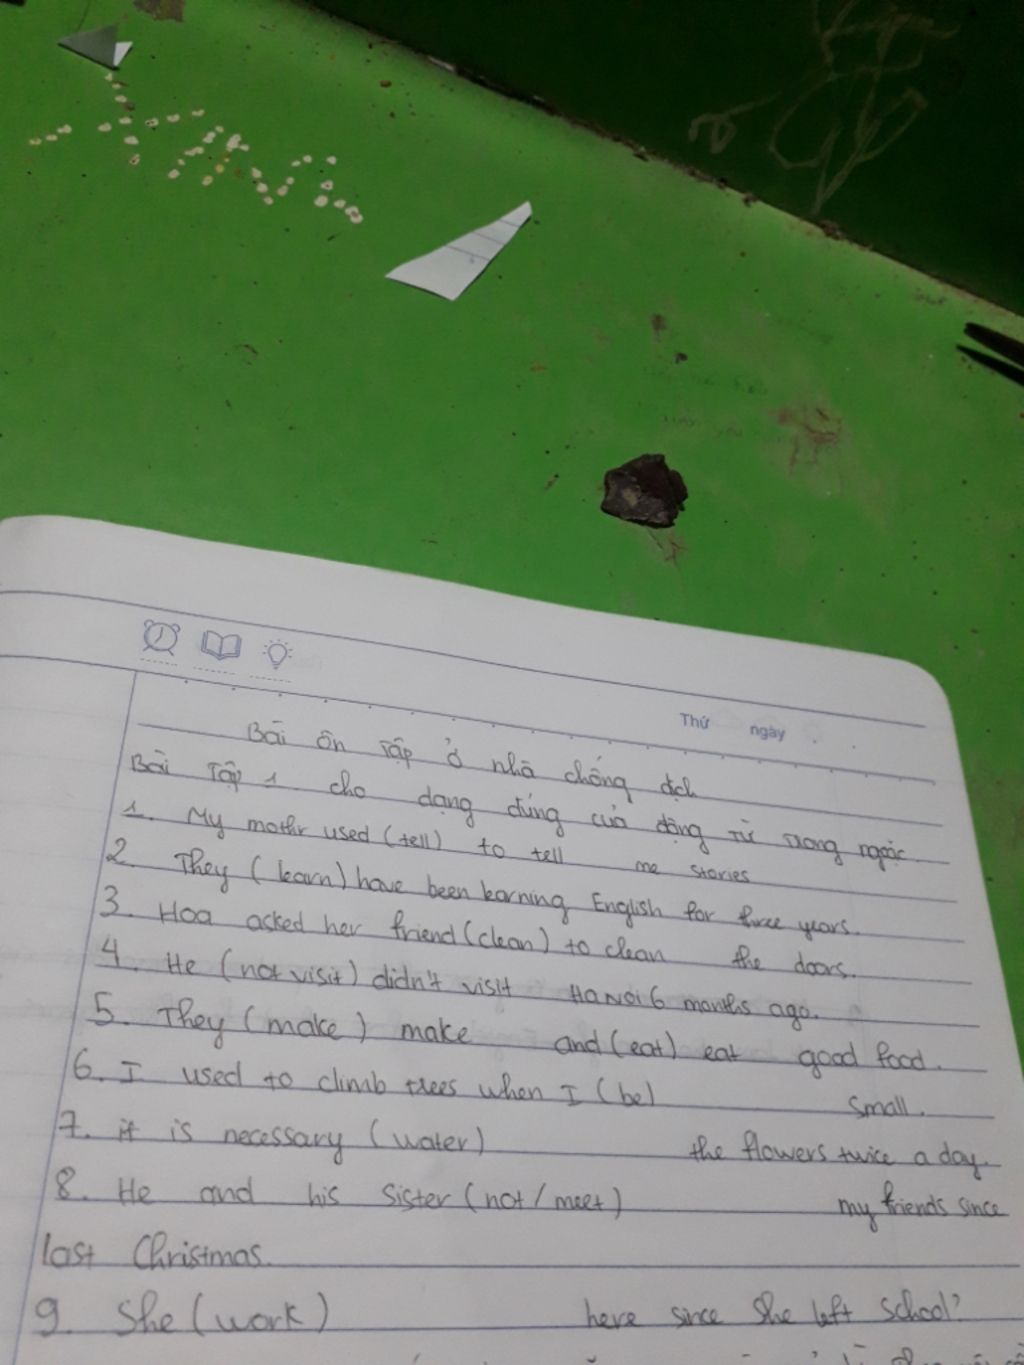 Thứ ngày
Bài ôn Tập ở nhà chống dịch
Bài Tập 1 cho dạng đúng của động từ trong ngoặc.
1. My mothr used (tell) to tell me stories
2. They (learn) have been learning English for three years.
3. Hoa asked her friend (clean) to clean the doors.
4. He (not visit) didn't visit Hanoi 6 months ago.
5. They (make) make and (eat) eat good food.
6. I used to climb trees when I (be) small.
7. it is necessary (water) the flowers twice a day.
8. He and his sister (not/meet) my friends since
last Christmas.
9. She (work) here since She left school?